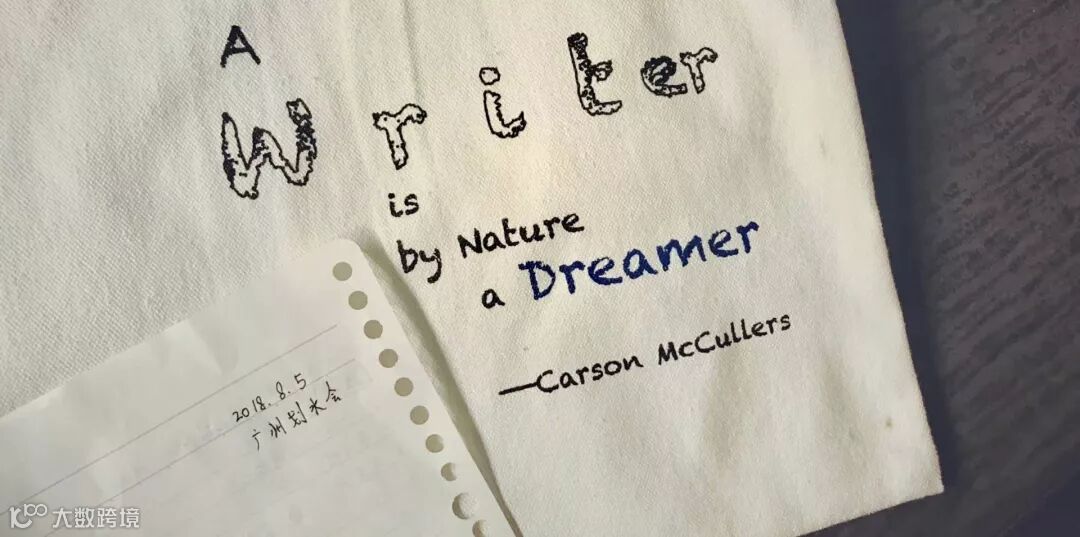 A
Writer
is
by Nature
a Dreamer
—Carson McCullers
2018.8.5
广州划水会
大数跨境